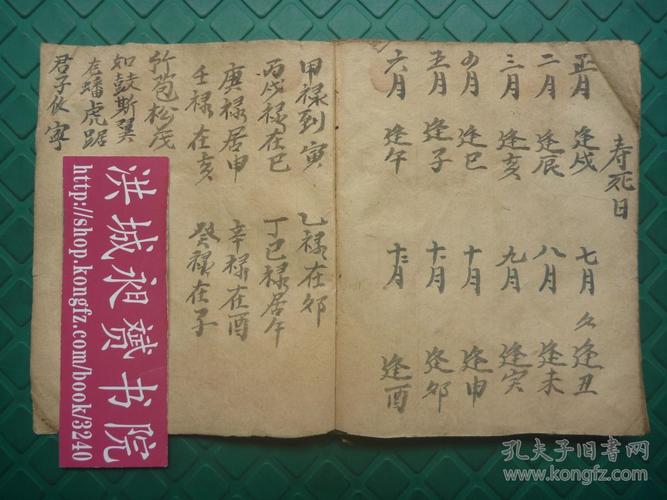 寿死日
正月 逢戌 七月 逢丑
二月 逢辰 八月 逢未
三月 逢亥 九月 逢寅
四月 逢巳 十月 逢申
五月 逢子 十一月 逢卯
六月 逢午 十二月 逢酉
甲禄到寅 乙禄在卯
丙戊禄在巳 丁巳禄居午
庚禄居申 辛禄在酉
壬禄在亥 癸禄在子
竹苞松茂
如鼓斯翼
蟠虎踞
君子攸宁
洪城昶赟书院
http://shop.kongfz.com/book/3240
孔夫子旧书网
www.kongfz.com